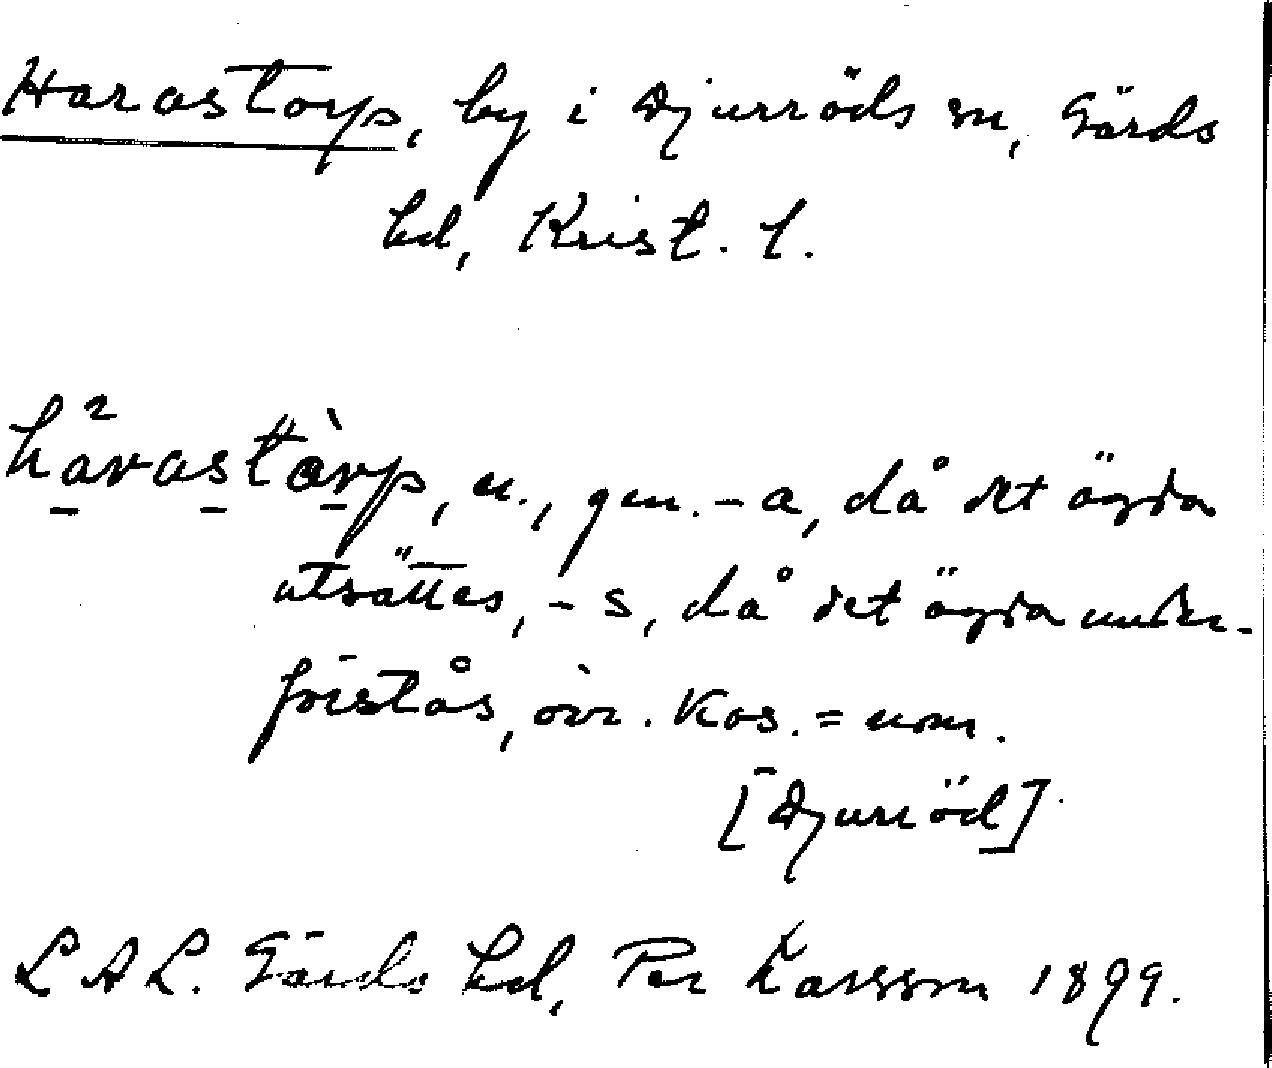 Harastorp, by i Djurröds sn, Gärds
hd, Krist. l.
hårastårp, n., gen. -a, då det ägda
utsättes, -s, då det ägda under-
förstås, övr. kas. = nom.
[Djurröd]
LAL. Gärds hd, Per Larsson 1899.